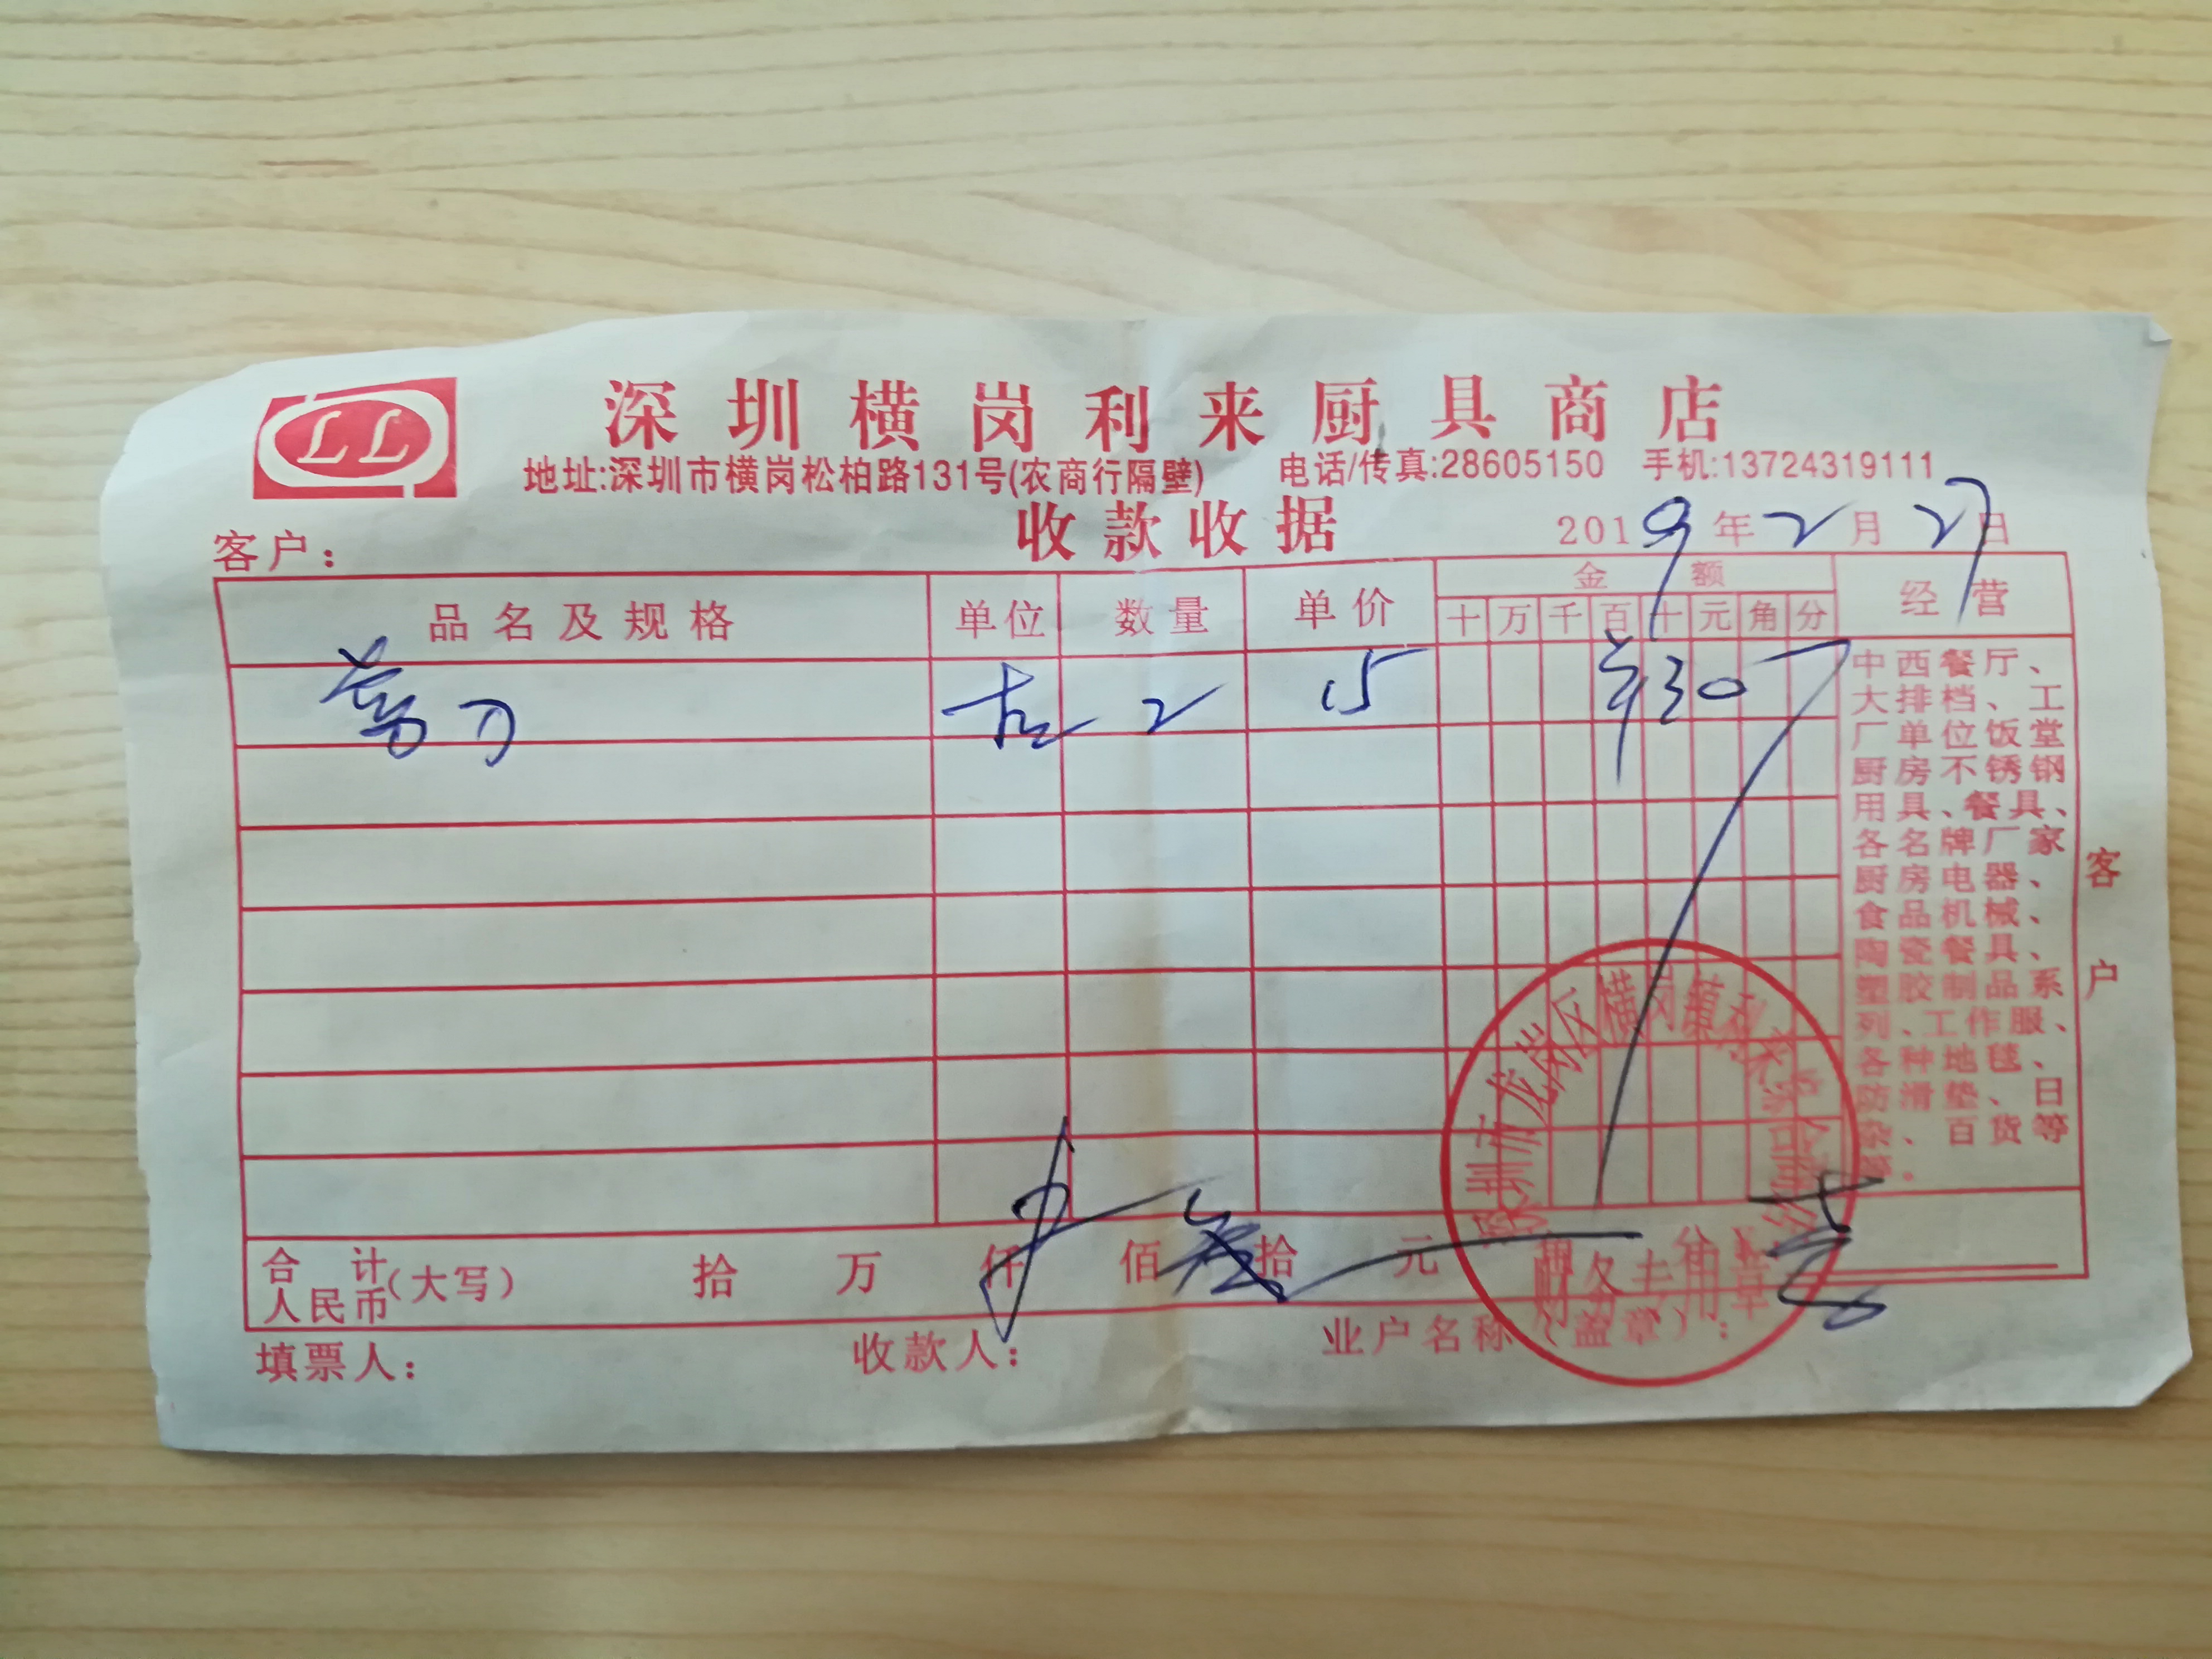 LL
深圳横岗利来厨具商店
地址:深圳市横岗松柏路131号(农商行隔壁) 电话/传真:28605150 手机:13724319111
收款收据
客户: 2019年2月27日
品名及规格 单位 数量 单价 金额 经营
十万千百十元角分
刀 2 15 ¥30
中西餐厅、
大排档、工
厂单位饭堂
厨房不锈钢
用具、餐具、
各名牌厂家
厨房电器、
食品机械、
陶瓷餐具、
塑胶制品系
列、工作服、
各种地毯、
防滑垫、日
杂、百货等
等。
客户
合计人民币(大写) 拾 万 仟 佰 叁拾 元 角 分 ¥
填票人: 收款人: 业户名称(盖章):
深圳市龙岗区横岗镇利来
财务专用章